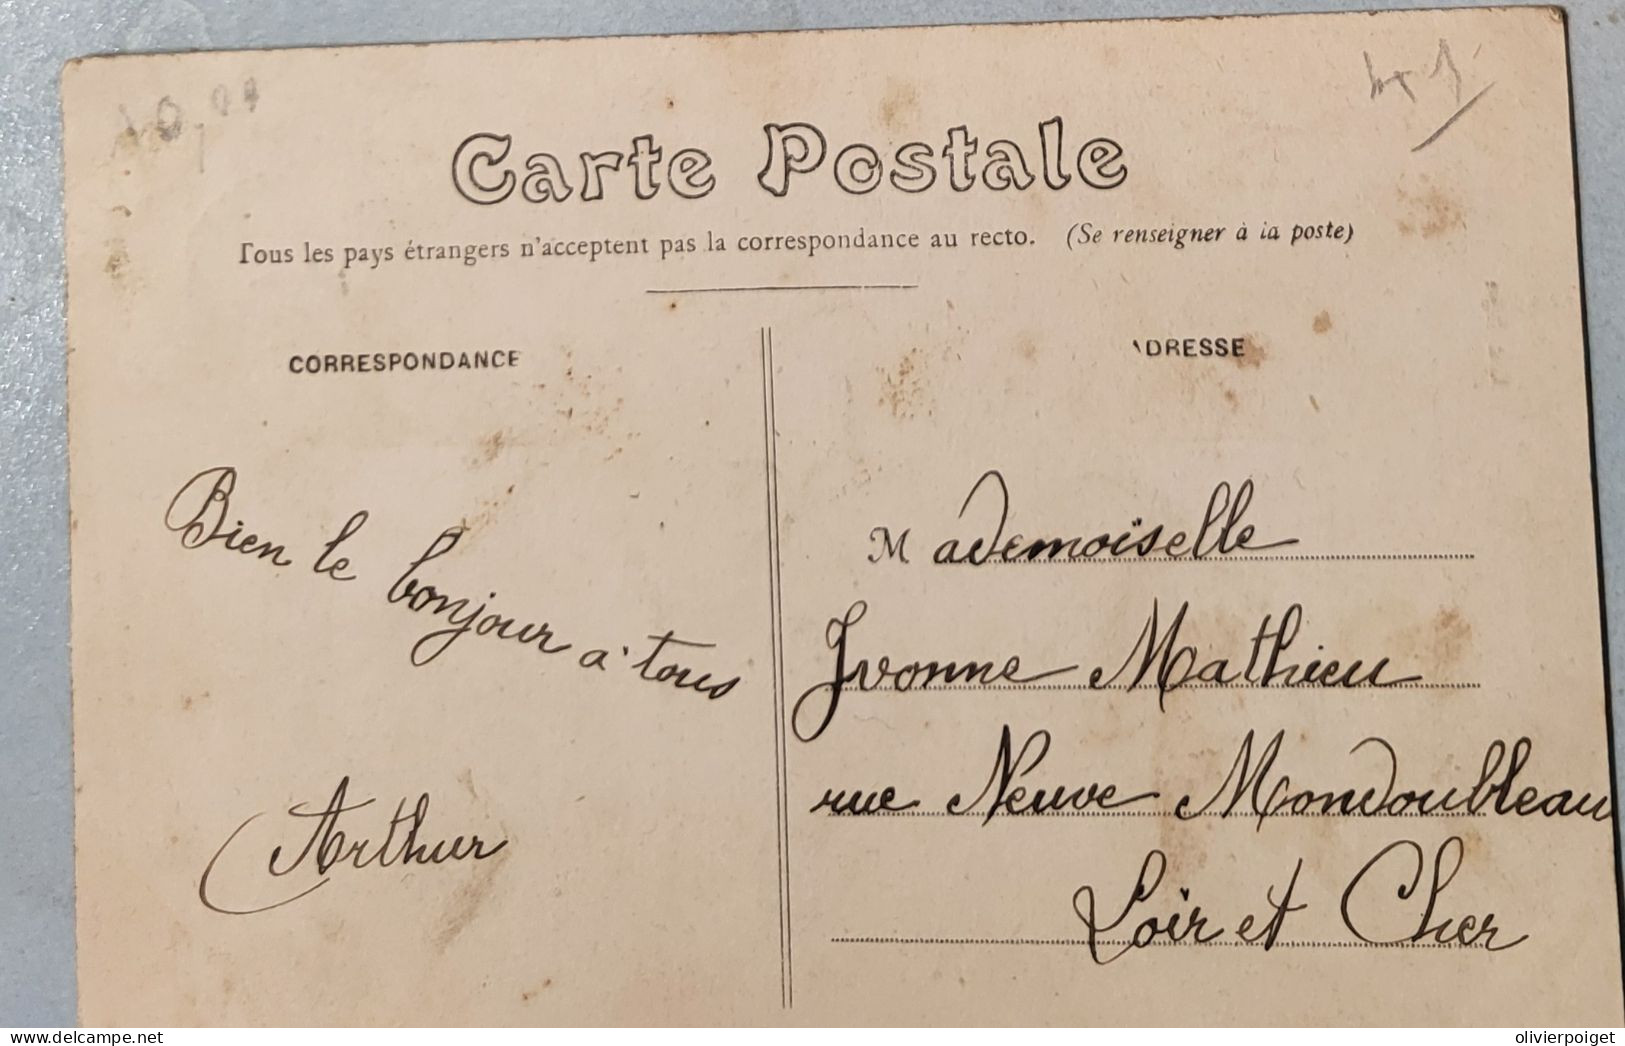 Carte Postale
Tous les pays étrangers n'acceptent pas la correspondance au recto. (Se renseigner à la poste)
CORRESPONDANCE
ADRESSE
Bien le bonjour à tous
Arthur
Mademoiselle
Yvonne Mathieu
rue Neuve Mondoubleau
Loir et Cher
www.delcampe.net
olivierpoiget